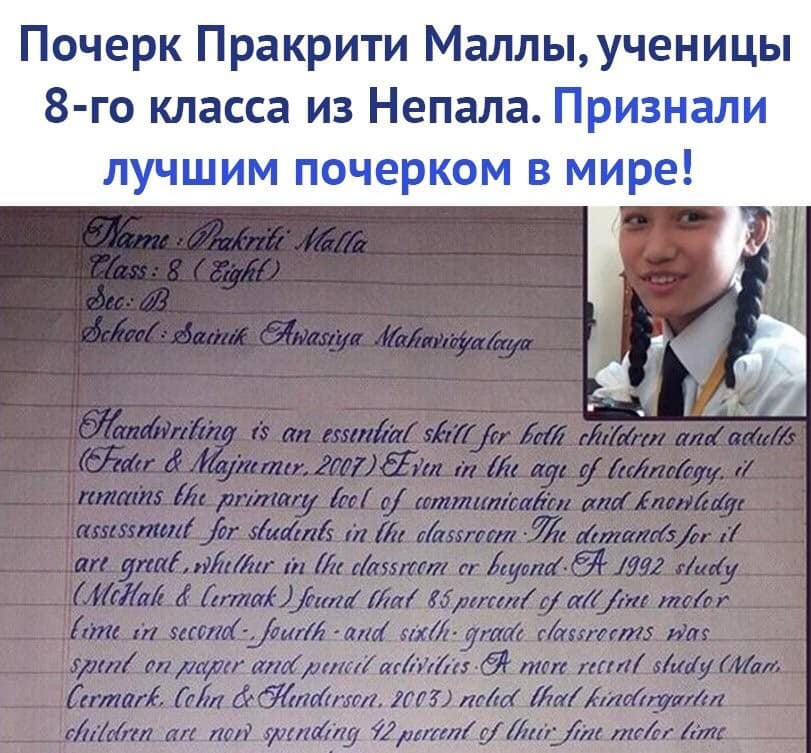 Почерк Пракрити Маллы, ученицы
8-го класса из Непала. Признали
лучшим почерком в мире!
Name : Prakriti Malla
Class : 8 ( Eight )
Sec : B
School : Sainik Awasiya Mahavidyalaya
Handwriting is an essential skill for both children and adults
(Feder & Majnemer, 2007) Even in the age of technology, it
remains the primary tool of communication and knowledge
assessment for students in the classroom. The demands for it
are great, whether in the classroom or beyond. A 1992 study
(McHale & Cermak) found that 85 percent of all fine motor
time in second-, fourth - and sixth- grade classrooms was
spent on paper and pencil activities. A more recent study (Marr,
Cermark, Cohn & Henderson, 2003) noted that kindergarten
children are now spending 42 percent of their fine motor time